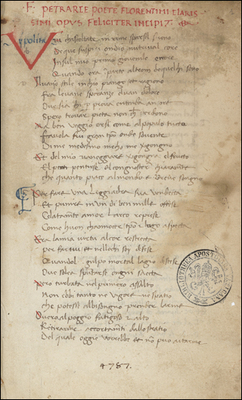 F: PETRARCE POETE FLORENTINI CLARIS
SIMI OPUS FELICITER INCIPIT
ascoltate in rime sparse il sono
Di que sospiri ondio nutriva il core
In sul mio primo giovenile errore
Quando era in parte altruom da quel
stile piango et ragiono
Fra le vane speranze el van dolore
per prova intenda amore
Spero trovar pieta non perdono
Ma ben veggio or si come al popolo tutto
Favola fui gran tempo onde sovente
Di me medesmo meco mi vergogno
Et del mio vaneggiar vergogna el frutto
El pentersi el conoscer chiaramente
che quanto piace al mondo e breve sogno
Per fare una leggiadra sua vendetta
Et punire in un di ben mille offese
Celatamente amor larco riprese
Come huom luogo aspetta
Era la mia virtu al cor ristretta
Per far ivi et nellochi sue difese
Quandol colpo mortal lagiu discese
Ove solea spuntarsi ogni saetta
Pero turbata nel primiero assalto
Non ebbe tanto ne vigore ne spatio
Che potesse al bisogno prender larme
Overo al poggio faticoso et alto
Ritrarme accortamente dallo stratio
Del quale oggi vorrebbe et non puo aitarme
4787.